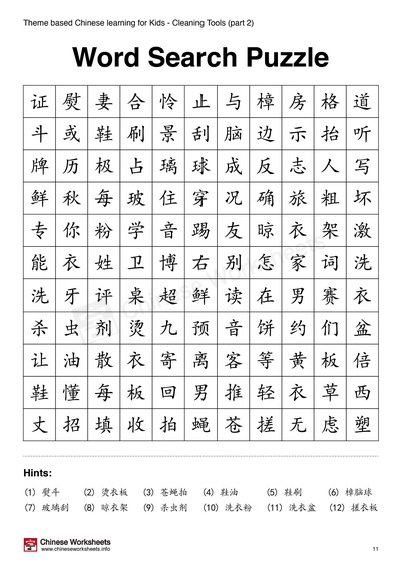 Theme based Chinese learning for Kids - Cleaning Tools (part 2)
Word Search Puzzle
证 熨 妻 合 怜 止 与 樟 房 格 道
斗 或 鞋 刷 景 刮 脑 边 示 抬 听
牌 历 极 占 璃 球 成 反 志 人 写
鲜 秋 每 玻 住 穿 况 确 旅 粗 坏
专 你 粉 学 音 踢 友 晾 衣 架 激
能 衣 姓 卫 博 右 别 怎 家 词 洗
洗 牙 评 桌 超 鲜 读 在 男 赛 衣
杀 虫 剂 烫 九 预 音 饼 约 们 盆
让 油 散 衣 寄 离 客 等 黄 板 倍
鞋 懂 每 板 回 男 推 轻 衣 草 西
丈 招 填 收 拍 蝇 苍 搓 无 虑 塑
Hints:
(1) 熨斗 (2) 烫衣板 (3) 苍蝇拍 (4) 鞋油 (5) 鞋刷 (6) 樟脑球
(7) 玻璃刮 (8) 晾衣架 (9) 杀虫剂 (10) 洗衣粉 (11) 洗衣盆 (12) 搓衣板
Chinese Worksheets
www.chineseworksheets.info
11